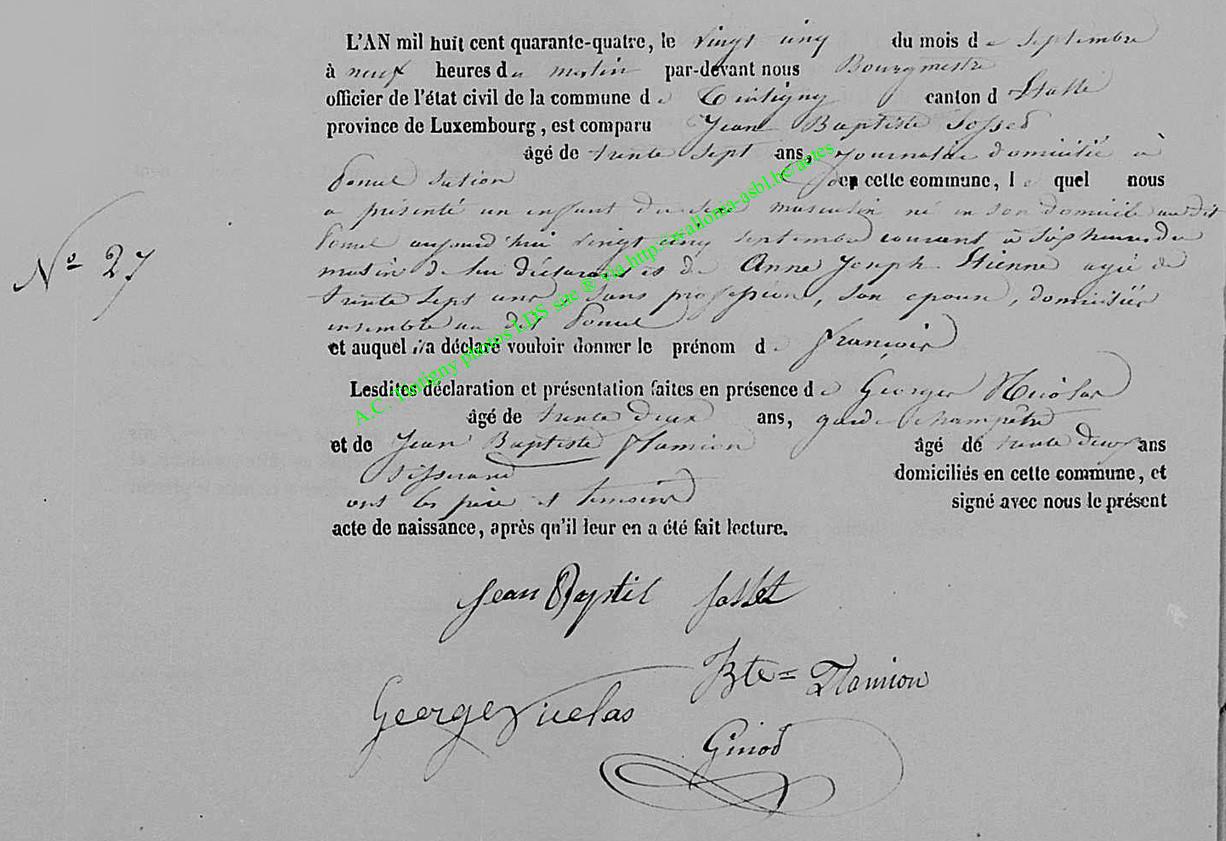 L'AN mil huit cent quarante-quatre, le vingt cinq du mois de Septembre
à neuf heures du matin par-devant nous Bourgmestre
officier de l'état civil de la commune de Tintigny canton d'Etalle
province de Luxembourg, est comparu Jean Baptiste Josset
âgé de trente sept ans, journalier domicilié à
en cette commune, le quel nous
a présenté un enfant du sexe masculin né en son domicile au dit
aujourd'hui vingt cinq septembre courant à sept heures du
matin de lui déclarant et de Anne Joseph Etienne agée de
trente sept ans, sans profession, son epouse, domiciliés
ensemble au dit
et auquel il a déclaré vouloir donner le prénom de françois
Lesdites déclaration et présentation faites en présence de Georges Nicolas
âgé de trente deux ans, garde champêtre
et de Jean Baptiste Flamion âgé de trente deux ans
Tisserand domiciliés en cette commune, et
ont les père et temoins signé avec nous le présent
acte de naissance, après qu'il leur en a été fait lecture.
N° 27
Jean Baptit Josset
Bte= Flamion
George Nicolas
Ginod
A.C. Tintigny photos LDS site ® via http://wallonia-asbl.be/actes